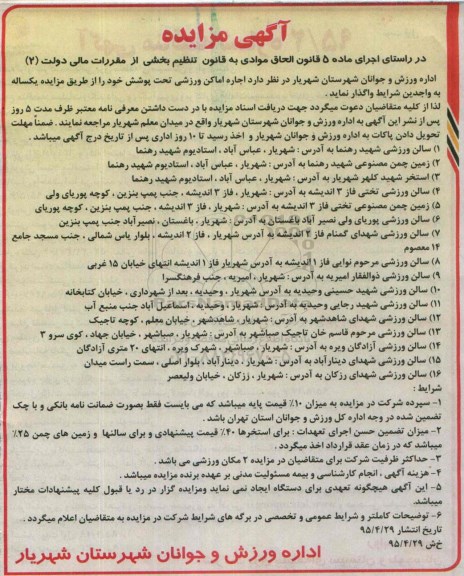 آگهی مزایده
در راستای اجرای ماده ۵ قانون الحاق موادی به قانون تنظیم بخشی از مقررات مالی دولت (۲)
اداره ورزش و جوانان شهرستان شهریار در نظر دارد اجاره اماکن ورزشی تحت پوشش خود را از طریق مزایده یکساله
به واجدین شرایط واگذار نماید .
لذا از کلیه متقاضیان دعوت میگردد جهت دریافت اسناد مزایده با در دست داشتن معرفی نامه معتبر ظرف مدت ۵ روز
پس از نشر این آگهی به اداره ورزش و جوانان شهرستان شهریار واقع در میدان معلم شهریار مراجعه نمایند . ضمناً مهلت
تحویل دادن پاکات به اداره ورزش و جوانان شهریار و اخذ رسید تا ۱۰ روز اداری پس از تاریخ درج آگهی میباشد .
۱) سالن ورزشی شهید رهنما به آدرس : شهریار ، عباس آباد ، استادیوم شهید رهنما
۲) زمین چمن مصنوعی شهید رهنما به آدرس : شهریار ، عباس آباد ، استادیوم شهید رهنما
۳) استخر شهید کلهر شهریار به آدرس : شهریار ، عباس آباد ، استادیوم شهید رهنما
۴) سالن ورزشی تختی فاز ۳ اندیشه به آدرس : شهریار ، فاز ۳ اندیشه ، جنب پمپ بنزین ، کوچه پوریای ولی
۵) زمین چمن مصنوعی تختی فاز ۳ اندیشه به آدرس : شهریار ، فاز ۳ اندیشه ، جنب پمپ بنزین ، کوچه پوریای
۶) سالن ورزشی پوریای ولی نصیر آباد باغستان به آدرس : شهریار ، باغستان ، نصیر آباد جنب پمپ بنزین
۷) سالن ورزشی شهدای گمنام فاز ۲ اندیشه به آدرس : شهریار ، فاز ۲ اندیشه ، بلوار یاس شمالی ، جنب مسجد جامع
۱۴ معصوم
۸) سالن ورزشی مرحوم نوایی فاز ۱ اندیشه به آدرس شهریار فاز ۱ اندیشه انتهای خیابان ۱۵ غربی
۹) سالن ورزشی ذوالفقار امیریه به آدرس : شهریار ، امیریه ، جنب فرهنگسرا
۱۰) سالن ورزشی شهید حسینی وحیدیه به آدرس شهریار ، وحیدیه ، بعد از شهرداری ، خیابان کتابخانه
۱۱) سالن ورزشی شهید رجایی وحیدیه به آدرس : شهریار ، وحیدیه ، اسماعیل آباد جنب منبع آب
۱۲) سالن ورزشی شهدای شاهدشهر به آدرس : شهریار ، شاهدشهر ، خیابان معلم ، کوچه تاجیک
۱۳) سالن ورزشی مرحوم قاسم خان تاجیک صباشهر به آدرس : شهریار ، صباشهر ، خیابان جهاد ، کوی سرو ۳
۱۴) سالن ورزشی آزادگان ویره به آدرس : شهریار ، صباشهر ، شهرک ویره ، انتهای ۲۰ متری آزادگان
۱۵) سالن ورزشی شهدای دینارآباد به آدرس : شهریار ، دینارآباد ، بلوار اصلی ، سمت راست میدان
۱۶) سالن ورزشی شهدای رزکان به آدرس : شهریار ، رزکان ، خیابان ولیعصر
شرایط :
۱- سپرده شرکت در مزایده به میزان ۱۰٪ قیمت پایه میباشد که می بایست فقط بصورت ضمانت نامه بانکی و یا چک
تضمین شده در وجه اداره کل ورزش و جوانان استان تهران باشد .
۲- میزان تضمین حسن اجرای تعهدات : برای استخرها ۴۰٪ قیمت پیشنهادی و برای سالنها و زمین های چمن ۲۵٪
میباشد که در زمان عقد قرارداد اخذ میگردد .
۳- حداکثر ظرفیت شرکت برای متقاضیان در مزایده ۲ مکان ورزشی می باشد .
۴- هزینه آگهی ، انجام کارشناسی و بیمه مسئولیت مدنی بر عهده برنده مزایده میباشد .
۵- این آگهی هیچگونه تعهدی برای دستگاه ایجاد نمی نماید ومزایده گزار در رد یا قبول کلیه پیشنهادات مختار
میباشد.
۶- توضیحات کاملتر و شرایط عمومی و تخصصی در برگه های شرایط شرکت در مزایده به متقاضیان اعلام میگردد .
تاریخ انتشار ۹۵/۴/۲۹
خ‌ش ۹۵/۴/۲۹
اداره ورزش و جوانان شهرستان شهریار